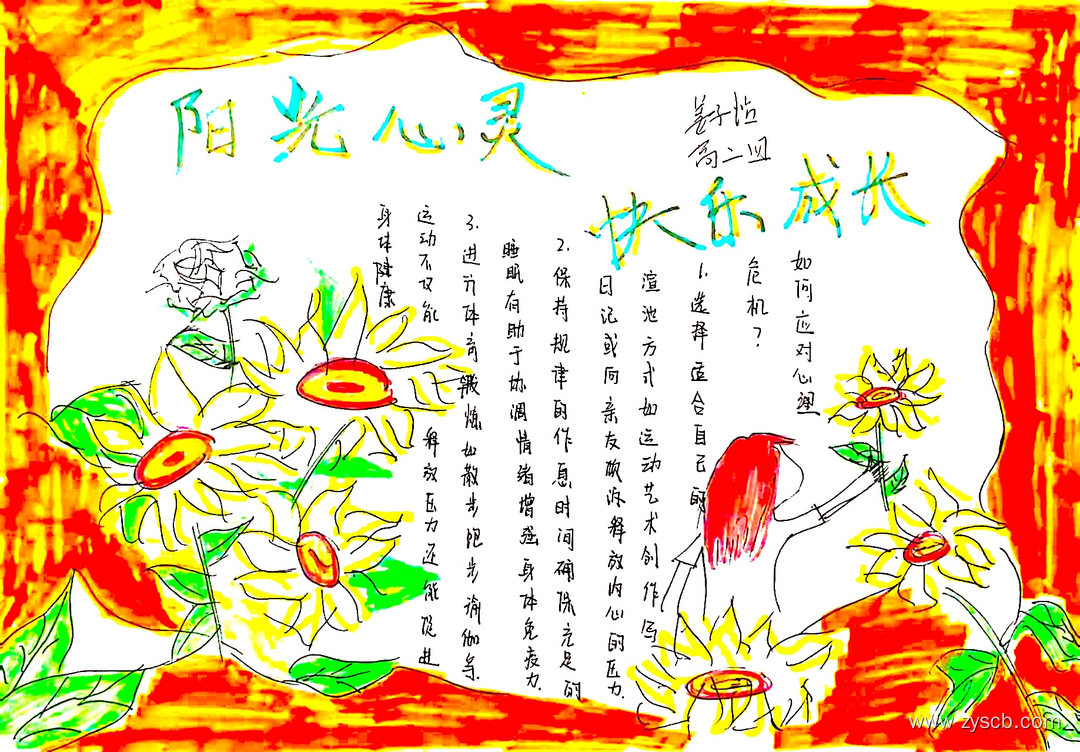 阳光心灵
姜子怡
高二四
快乐成长
如何应对心理
危机？
1.选择适合自己的
渲池方式如运动艺术创作写
日记或向亲友倾诉释放内心的压力.
2.保持规律的作息时间确保充足的
睡眠有助于协调情绪增强身体免疫力.
3.进行体育锻炼如散步跑步瑜伽等.
运动不仅能释放压力还能促进
身体健康
www.zyscb.com